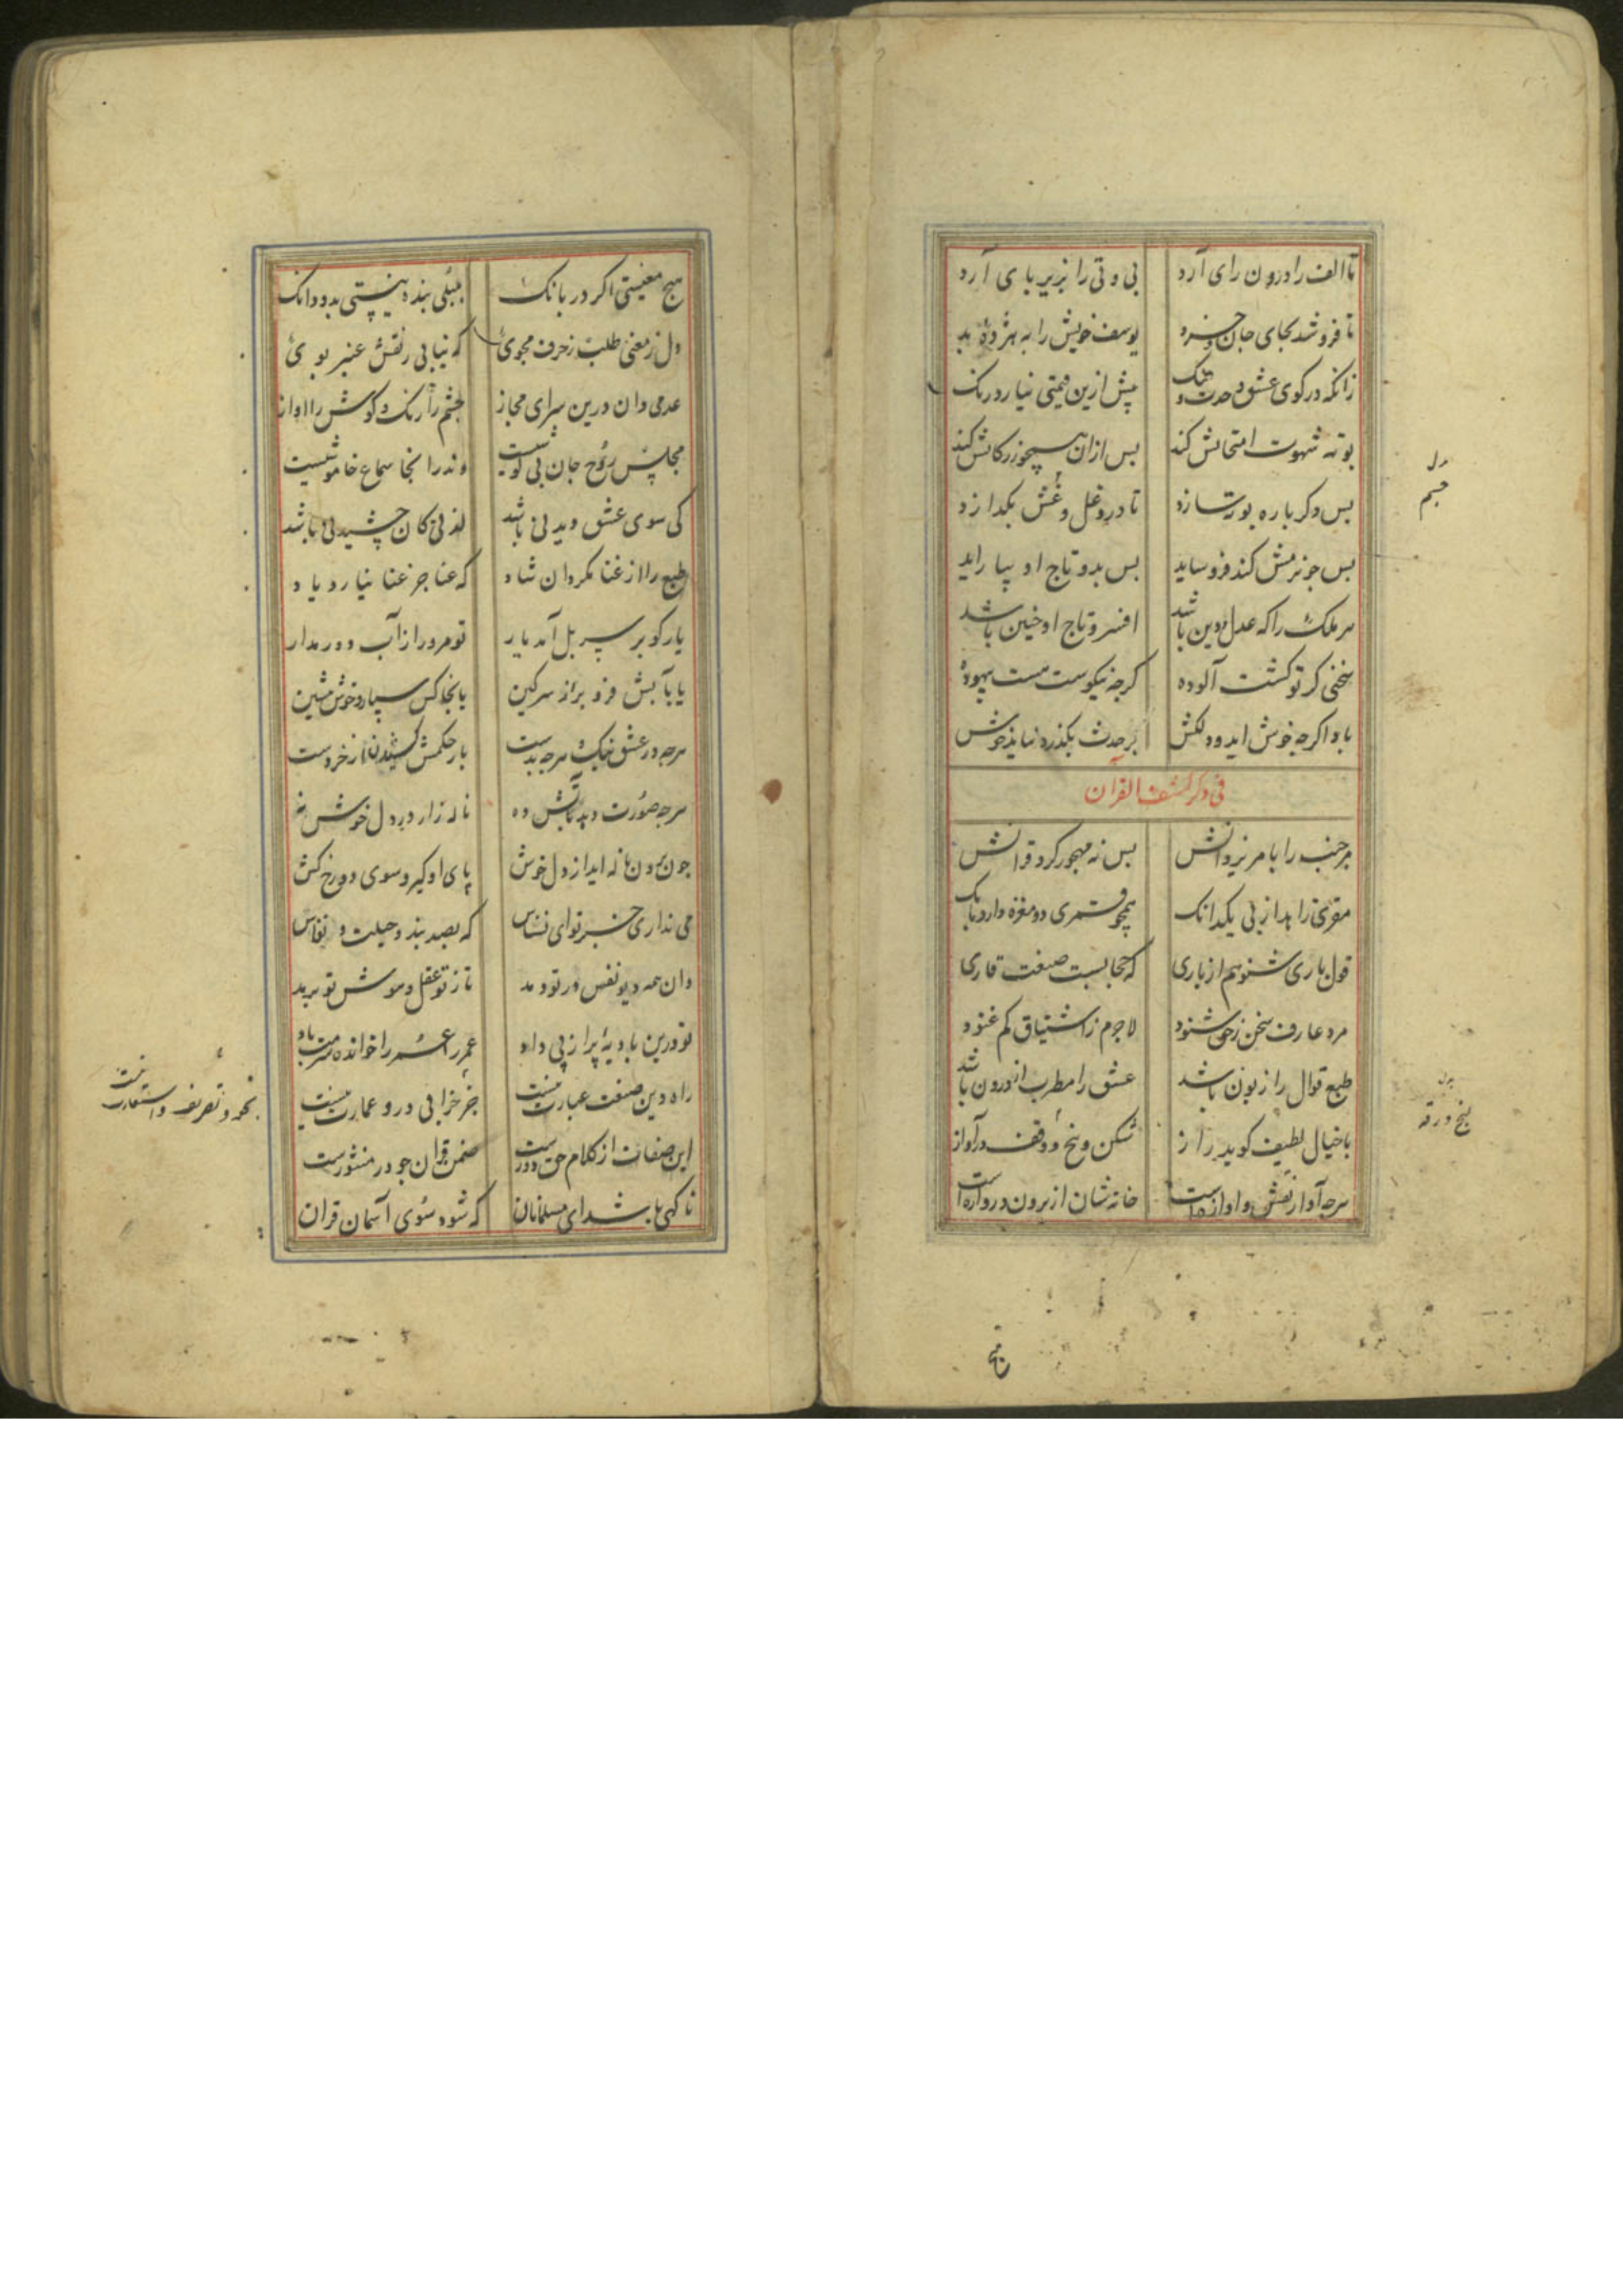 تا الف را درون رای آرد بی و تی را بزیر بای آرد
تا فروشد بجای جان خرد یوسف خویش را به هژده بد
زانکه در کوی عشق و حدت و تنک پیش ازین قیمتی نیارد رنک
بوته شهوت امتحانش کند بس ازان همچو زر کانش کند
بس دکر باره بوته سازد تا درو غل و غش بکدازد
بس جو نرمش کند فروساید بس بدو تاج او بیاراید
هر ملک را که عدل و دین باشد افسر و تاج او جنین باشد
سخنی کز تو کشت آلوده کرجه نیکوست هست بیهوده
باد اکرجه خوش اید و دلکش بر حدث بکذرد نیاید خوش
فی ذکر کشف القرآن
هر جنب را بامر یزدانش بس نه مهجور کرد قرانش
مقری زاهد از بی یکدانک همچو قمری دو مغزه دارد بانک
قول باری شنو هم از باری که حجابست صنعت قاری
مرد عارف سخن ز حق شنود لاجرم ز اشتیاق کم غنود
طبع قوال را زبون باشد عشق را مطرب از درون باشد
با خیال لطیف کوید راز شکن و پنج و وقف در آواز
هرجه آواز نقش و اوازه است خانه شان از برون دروازه است
دل
جسم
پنج ورقه
هیچ معنیستی اکر در بانک بلبلی بنده نیستی بدو دانک
دل ز معنی طلب ز حرف مجوی که نیابی ز نقش عنبر بوی
عدمی دان درین سرای مجاز جشم را رنک و کوش را اواز
مجلس روح جان بی کوشیست وندر انجا سماع خاموشیست
کی سوی عشق دیدنی باشد لذتی کان چشیدنی باشد
طبع را از غنا مکردان شاد که غنا جز عنا نیارد یاد
یار کو بر سر پل آمد یار تو مرو را ز آب دور مدار
یا بآبش فرو بر از سر کین یا بخاکش سپار و خوش بنشین
هرجه در عشق نیک و هرجه بدست بار حکمش کشیدن از خردست
هرجه صورت دهد بآتش ده ناله زار در دل خوش نه
جون برون ناله اید از دل خوش پای او کیر و سوی دوزخ کش
می نداری خبر تو ای نسناس که بصد بند و حیلت و نفاس
وان همه دیو نفس در تو دمد تا ز تو عقل و هوش تو برمد
تو درین بادیه پر از بی داد عمر را خوانده
راه دین صنعت عبارت نیست جز خرابی درو عمارت نیست
این صفات از کلام حق دورست ضمن قران جو در منثورست
ناکهی باشد ای مسلمانان که شود سوی آسمان قران
نحو و تصریف و استعارت نیست